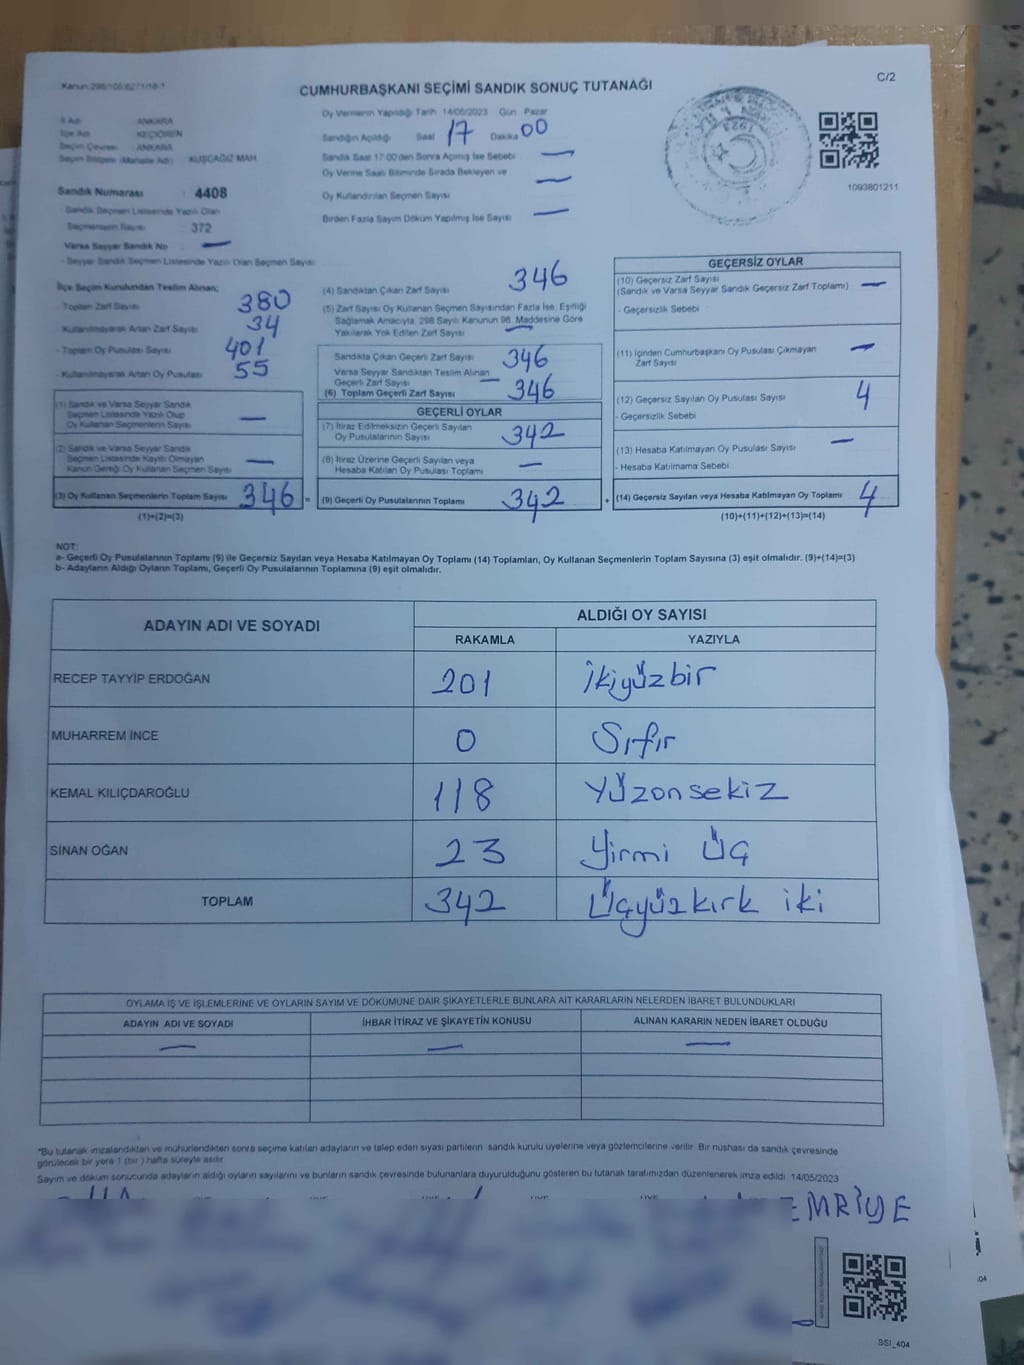 Kanun:298/105;6271/18-1
C/2
CUMHURBAŞKANI SEÇİMİ SANDIK SONUÇ TUTANAĞI
İl Adı : ANKARA
İlçe Adı : KEÇİÖREN
Seçim Çevresi : ANKARA
Seçim Bölgesi (Mahalle Adı) : KUŞCAĞIZ MAH.
Sandık Numarası : 4408
- Sandık Seçmen Listesinde Yazılı Olan
Seçmenlerin Sayısı : 372
Varsa Seyyar Sandık No : —
- Seyyar Sandık Seçmen Listesinde Yazılı Olan Seçmen Sayısı:
Oy Vermenin Yapıldığı Tarih 14/05/2023 Gün Pazar
Sandığın Açıldığı Saat 17 Dakika 00
Sandık Saat 17:00'den Sonra Açılmış İse Sebebi —
Oy Verme Saati Bitiminde Sırada Bekleyen ve —
Oy Kullandırılan Seçmen Sayısı
Birden Fazla Sayım Döküm Yapılmış İse Sayısı —
1923
1093801211
İlçe Seçim Kurulundan Teslim Alınan;
Toplam Zarf Sayısı 380
- Kullanılmayarak Artan Zarf Sayısı 34
- Toplam Oy Pusulası Sayısı 401
- Kullanılmayarak Artan Oy Pusulası 55
(1) Sandık ve Varsa Seyyar Sandık
Seçmen Listesinde Yazılı Olup
Oy Kullanan Seçmenlerin Sayısı —
(2) Sandık ve Varsa Seyyar Sandık
Seçmen Listesinde Kayıtlı Olmayan
Kanun Gereği Oy Kullanan Seçmen Sayısı —
(3) Oy Kullanan Seçmenlerin Toplam Sayısı 346 =
(1)+(2)=(3)
(4) Sandıktan Çıkan Zarf Sayısı 346
(5) Zarf Sayısı Oy Kullanan Seçmen Sayısından Fazla İse; Eşitliği
Sağlamak Amacıyla, 298 Sayılı Kanunun 98. Maddesine Göre
Yakılarak Yok Edilen Zarf Sayısı —
Sandıkta Çıkan Geçerli Zarf Sayısı 346
Varsa Seyyar Sandıktan Teslim Alınan
Geçerli Zarf Sayısı —
(6) Toplam Geçerli Zarf Sayısı 346
GEÇERLİ OYLAR
(7) İtiraz Edilmeksizin Geçerli Sayılan
Oy Pusulalarının Sayısı 342
(8) İtiraz Üzerine Geçerli Sayılan veya
Hesaba Katılan Oy Pusulası Toplamı —
(9) Geçerli Oy Pusulalarının Toplamı 342 +
GEÇERSİZ OYLAR
(10) Geçersiz Zarf Sayısı
(Sandık ve Varsa Seyyar Sandık Geçersiz Zarf Toplamı) —
- Geçersizlik Sebebi
(11) İçinden Cumhurbaşkanı Oy Pusulası Çıkmayan
Zarf Sayısı —
(12) Geçersiz Sayılan Oy Pusulası Sayısı 4
- Geçersizlik Sebebi
(13) Hesaba Katılmayan Oy Pusulası Sayısı —
- Hesaba Katılmama Sebebi
(14) Geçersiz Sayılan veya Hesaba Katılmayan Oy Toplamı 4
(10)+(11)+(12)+(13)=(14)
NOT:
a- Geçerli Oy Pusulalarının Toplamı (9) ile Geçersiz Sayılan veya Hesaba Katılmayan Oy Toplamı (14) Toplamları, Oy Kullanan Seçmenlerin Toplam Sayısına (3) eşit olmalıdır. (9)+(14)=(3)
b- Adayların Aldığı Oyların Toplamı, Geçerli Oy Pusulalarının Toplamına (9) eşit olmalıdır.
ADAYIN ADI VE SOYADI ALDIĞI OY SAYISI
RAKAMLA YAZIYLA
RECEP TAYYİP ERDOĞAN 201 İkiyüzbir
MUHARREM İNCE 0 Sıfır
KEMAL KILIÇDAROĞLU 118 Yüzonsekiz
SİNAN OĞAN 23 Yirmi Üç
TOPLAM 342 Üçyüzkırk iki
OYLAMA İŞ VE İŞLEMLERİNE VE OYLARIN SAYIM VE DÖKÜMÜNE DAİR ŞİKAYETLERLE BUNLARA AİT KARARLARIN NELERDEN İBARET BULUNDUKLARI
ADAYIN ADI VE SOYADI İHBAR İTİRAZ VE ŞİKAYETİN KONUSU ALINAN KARARIN NEDEN İBARET OLDUĞU
— — —
*Bu tutanak imzalandıktan ve mühürlendikten sonra seçime katılan adayların ve talep eden siyasi partilerin sandık kurulu üyelerine veya gözlemcilerine verilir. Bir nüshası da sandık çevresinde
görülecek bir yere 1 (bir ) hafta süreyle asılır.
Sayım ve döküm sonucunda adayların aldığı oyların sayılarını ve bunların sandık çevresinde bulunanlara duyurulduğunu gösteren bu tutanak tarafımızdan düzenlenerek imza edildi. 14/05/2023
EMRİYE
SSI_404